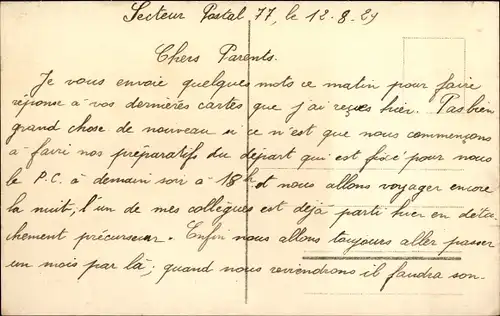 Secteur Postal 77, le 12-8-29
Chers Parents.
Je vous envoie quelques mots ce matin pour faire
réponse à vos dernières cartes que j'ai reçues hier. Pas bien
grand chose de nouveau si ce n'est que nous commençons
à faire nos préparatifs du départ qui est fixé pour nous
le P.C. à demain soir à 18h et nous allons voyager encore
la nuit, l'un de mes collègues est déjà parti hier en déta-
chement précurseur. Enfin nous allons toujours aller passer
un mois par là ; quand nous reviendrons il faudra son-